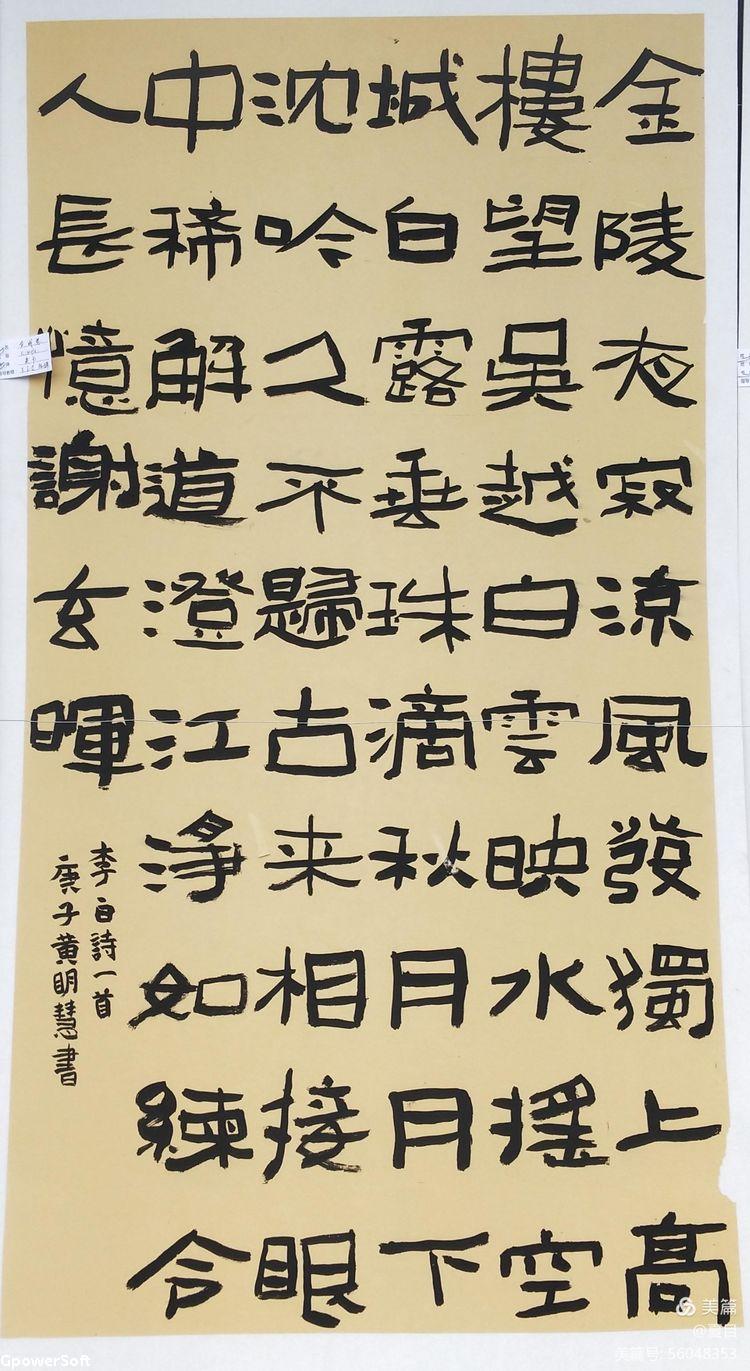 金陵夜寂涼風發獨上高
樓望吳越白雲映水搖空
城白露垂珠滴秋月月下
沈吟久不歸古来相接眼
中稀解道澄江淨如練令
人長憶謝玄暉
李白詩一首
庚子黄明慧書
美篇
@夏目
美篇号: 56048353
GpowerSoft